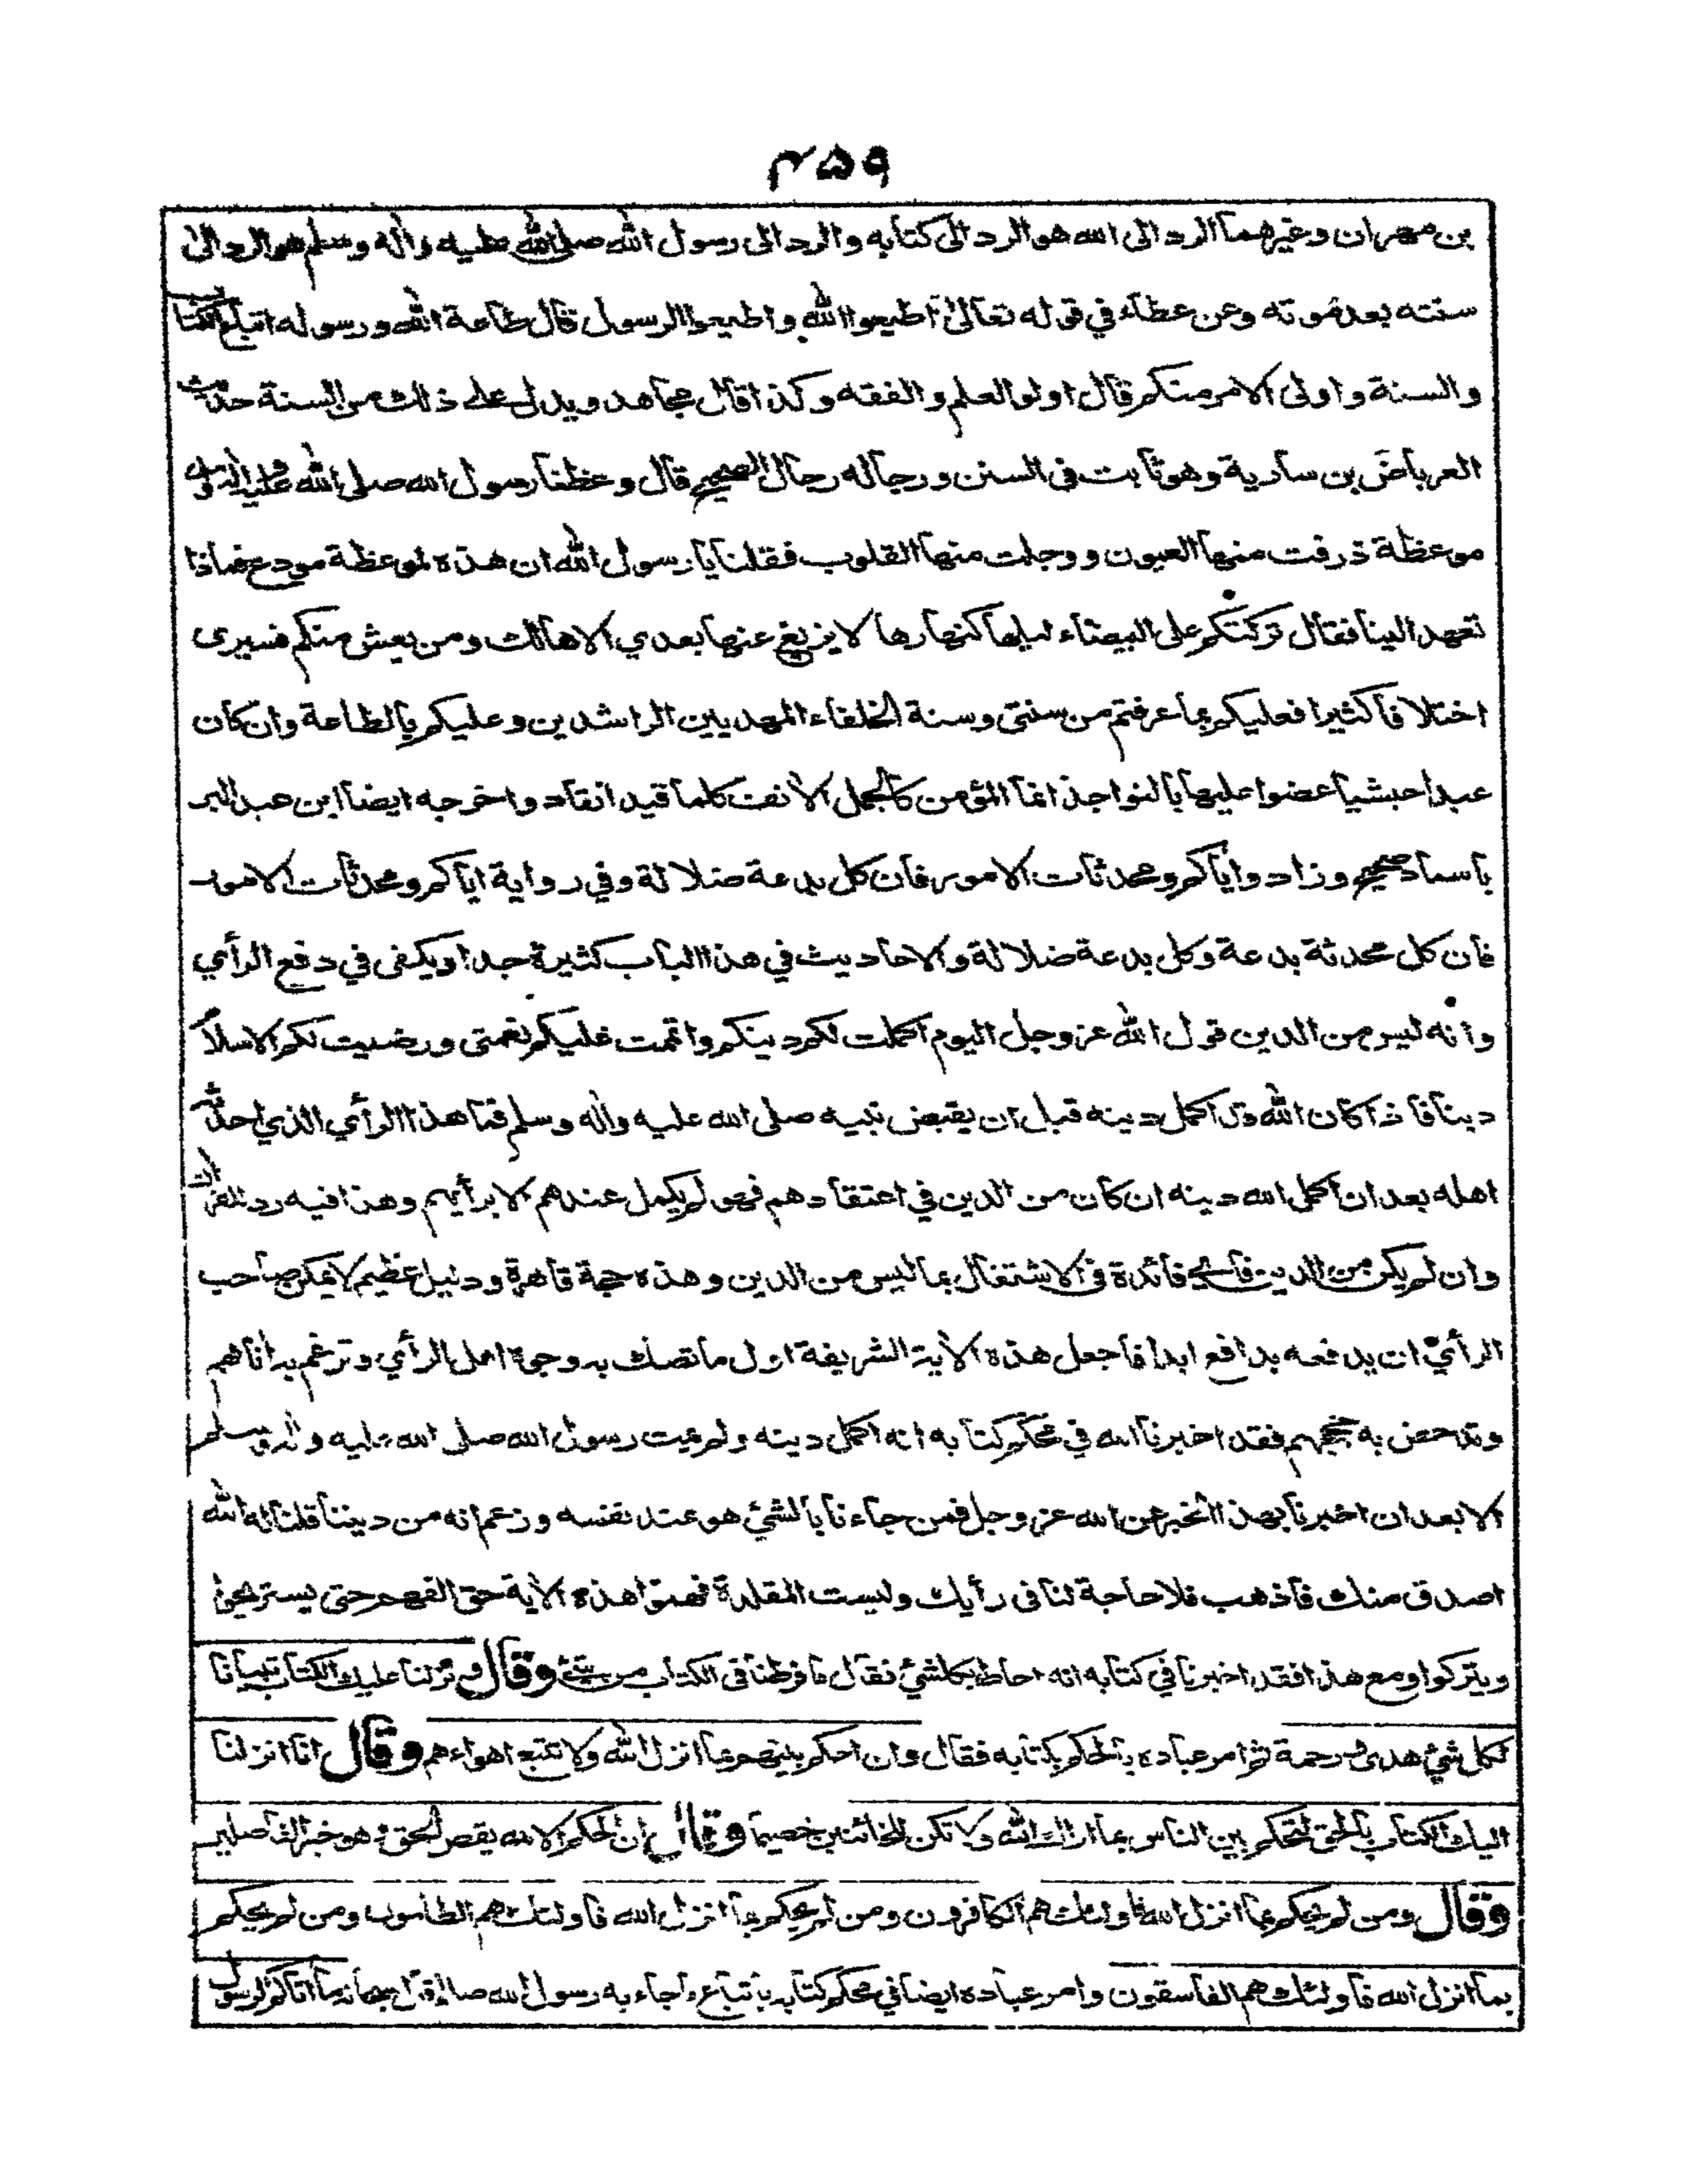 ۴۵۹
بن مهران وغيرهما الرد الى الله هو الرد الى كتابه والرد الى رسول الله صلى الله عليه واله وسلم هو الرد الى
سنته بعد موته وعن عطاء في قوله تعالى اطيعوا الله واطيعوا الرسول قال طاعة الله ورسوله اتباع الكتاب
والسنة واولى الامر منكم قال اولوا العلم والفقه وكذا قال مجاهد ويدل على ذلك من السنة حديث
العرباض بن سارية وهو ثابت في السنن ورجاله رجال الصحيح قال وعظنا رسول الله صلى الله عليه واله وسلم
موعظة ذرفت منها العيون ووجلت منها القلوب فقلنا يا رسول الله ان هذه لموعظة مودع فماذا
تعهد الينا فقال تركتكم على البيضاء ليلها كنهارها لا يزيغ عنها بعدي الا هالك ومن يعش منكم فسيرى
اختلافا كثيرا فعليكم بما عرفتم من سنتي وسنة الخلفاء المهديين الراشدين وعليكم بالطاعة وان كان
عبدا حبشيا عضوا عليها بالنواجذ انما المؤمن كالجمل الانف كلما قيد انقاد واخرجه ايضا ابن عبد البر
باسناد صحيح وزاد واياكم ومحدثات الامور فان كل بدعة ضلالة وفي رواية اياكم ومحدثات الامور
فان كل محدثة بدعة وكل بدعة ضلالة والاحاديث في هذا الباب كثيرة جدا ويكفى في دفع الرأي
وانه ليس من الدين قول الله عز وجل اليوم اكملت لكم دينكم واتممت عليكم نعمتى ورضيت لكم الاسلام
دينا فاذا كان الله قد اكمل دينه قبل ان يقبض نبيه صلى الله عليه واله وسلم فما هذا الرأي الذي احدثه
اهله بعد ان اكمل الله دينه ان كان من الدين في اعتقادهم فهو لم يكمل عندهم الا برأيهم وهذا فيه رد للقرآن
وان لم يكن من الدين فاي فائدة في الاشتغال بما ليس من الدين وهذه حجة قاهرة ودليل عظيم لا يمكن صاحب
الرأي ان يدفعه بدافع ابدا فاجعل هذه الاية الشريفة اول ما تصك به وجوه اهل الرأي وترغم به انافهم
وتدحض به حججهم فقد اخبرنا الله في محكم كتابه انه اكمل دينه ولم يمت رسول الله صلى الله عليه واله وسلم
الا بعد ان اخبرنا بهذا الخبر عن الله عز وجل فمن جاءنا بالشئ هو عند نفسه وزعم انه من ديننا قلنا له الله
اصدق منك فاذهب فلا حاجة لنا في رأيك وليست المقلدة فهموا هذه الاية حق الفهم حتى يستريحوا
ويتركوا ومع هذا فقد اخبرنا في كتابه انه احاط بكل شئ فقال ما فرطنا في الكتاب من شئ وقال ونزلنا عليك الكتاب تبيانا
لكل شئ هدى ورحمة ثم امر عباده بالحكم بكتابه فقال وان احكم بينهم بما انزل الله ولا تتبع اهواءهم وقال انا انزلنا
اليك الكتاب بالحق لتحكم بين الناس بما اراك الله ولا تكن للخائنين خصيما وقال ان الحكم الا لله يقص الحق وهو خير الفاصلين
وقال ومن لم يحكم بما انزل الله فاولئك هم الكافرون ومن لم يحكم بما انزل الله فاولئك هم الظالمون ومن لم يحكم
بما انزل الله فاولئك هم الفاسقون وامر عباده ايضا في محكم كتابه باتباع ما جاء به رسول الله فقال سبحانه ما اتاكم الرسول